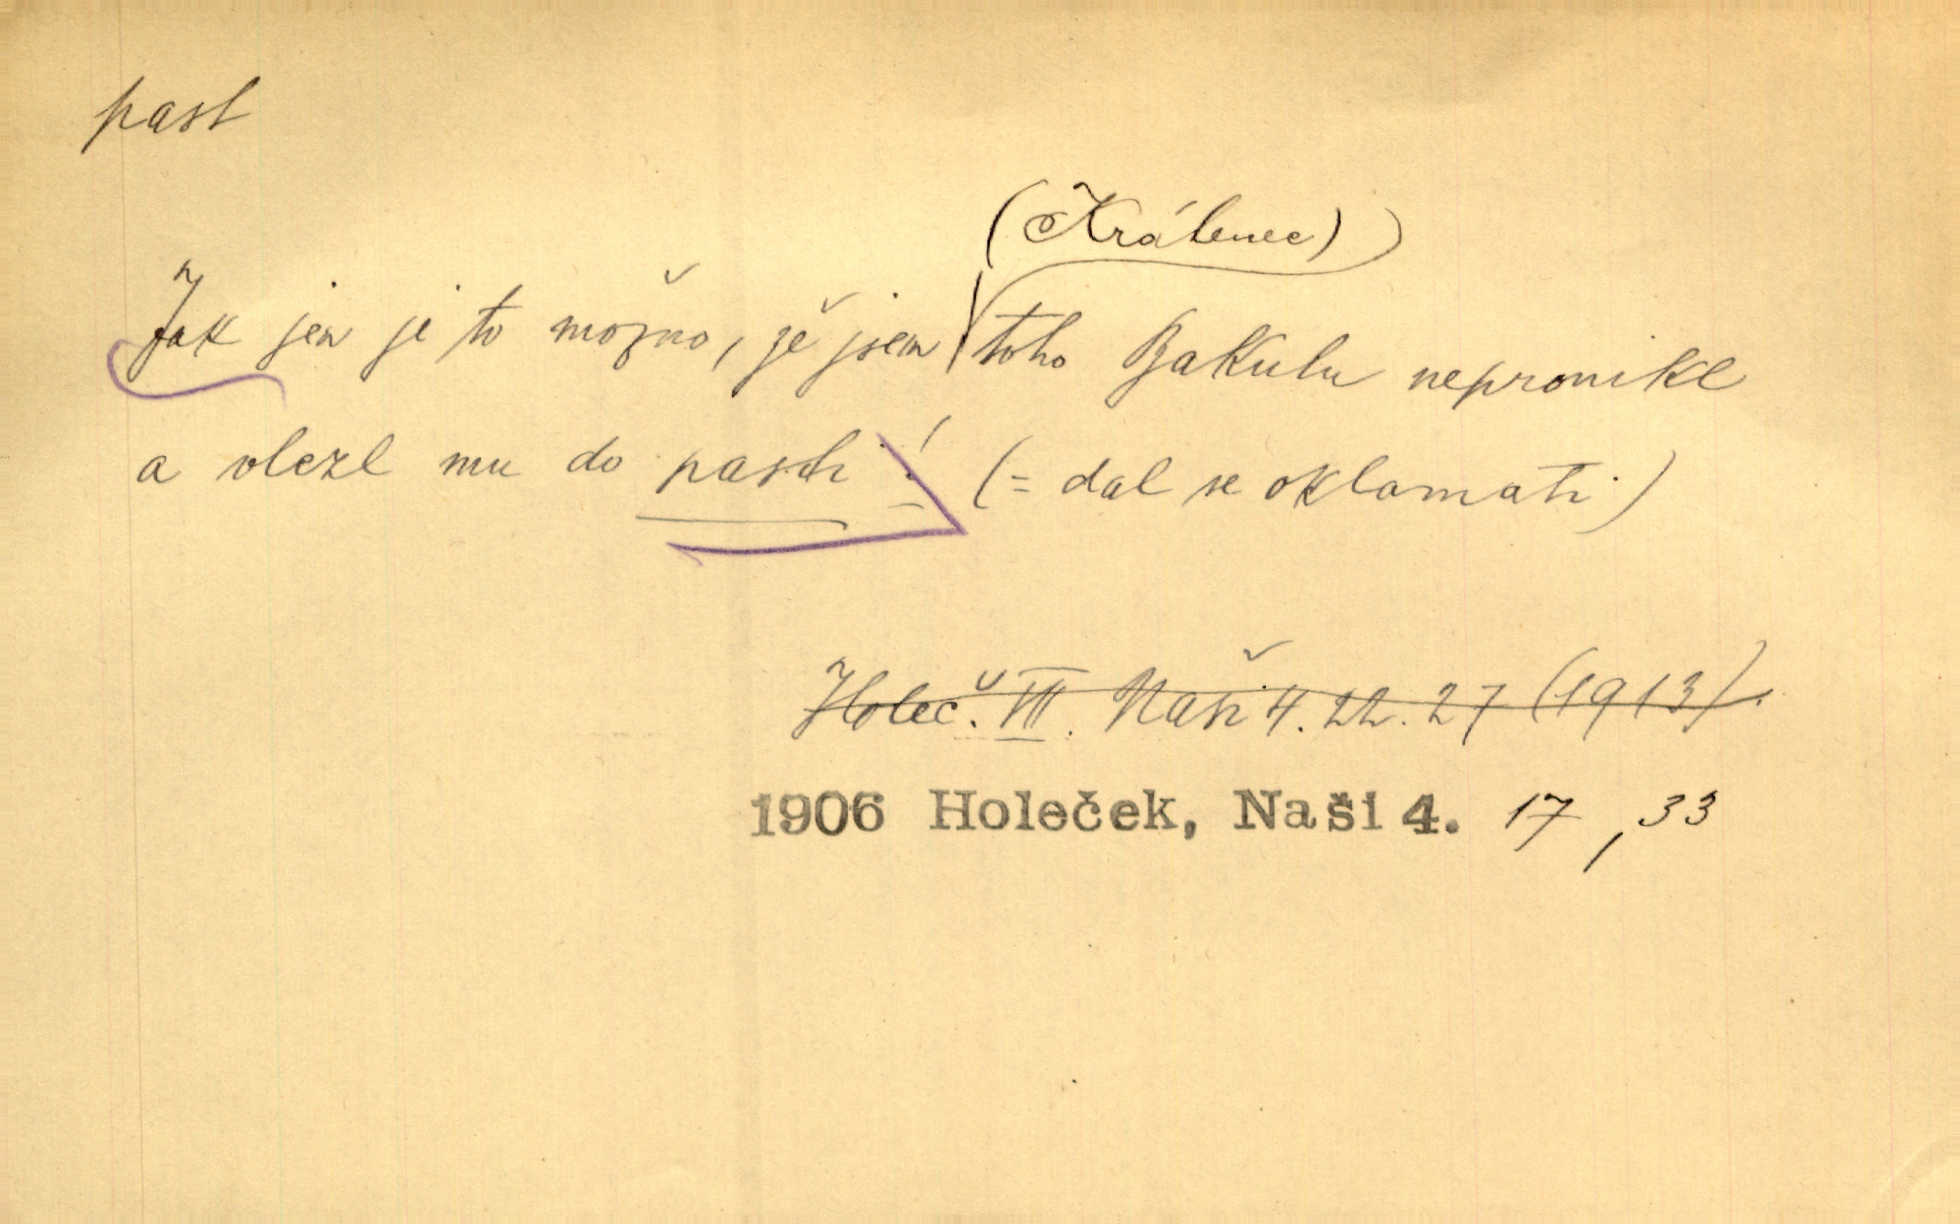 past
(Králenec)
Jak jen je to možno, že jsem toho Bakulu nepronikl
a vlezl mu do pasti! (= dal se oklamati)
Holeč. VII. Naši 4. 22. 27 (1913).
1906 Holeček, Naši 4. 17, 33